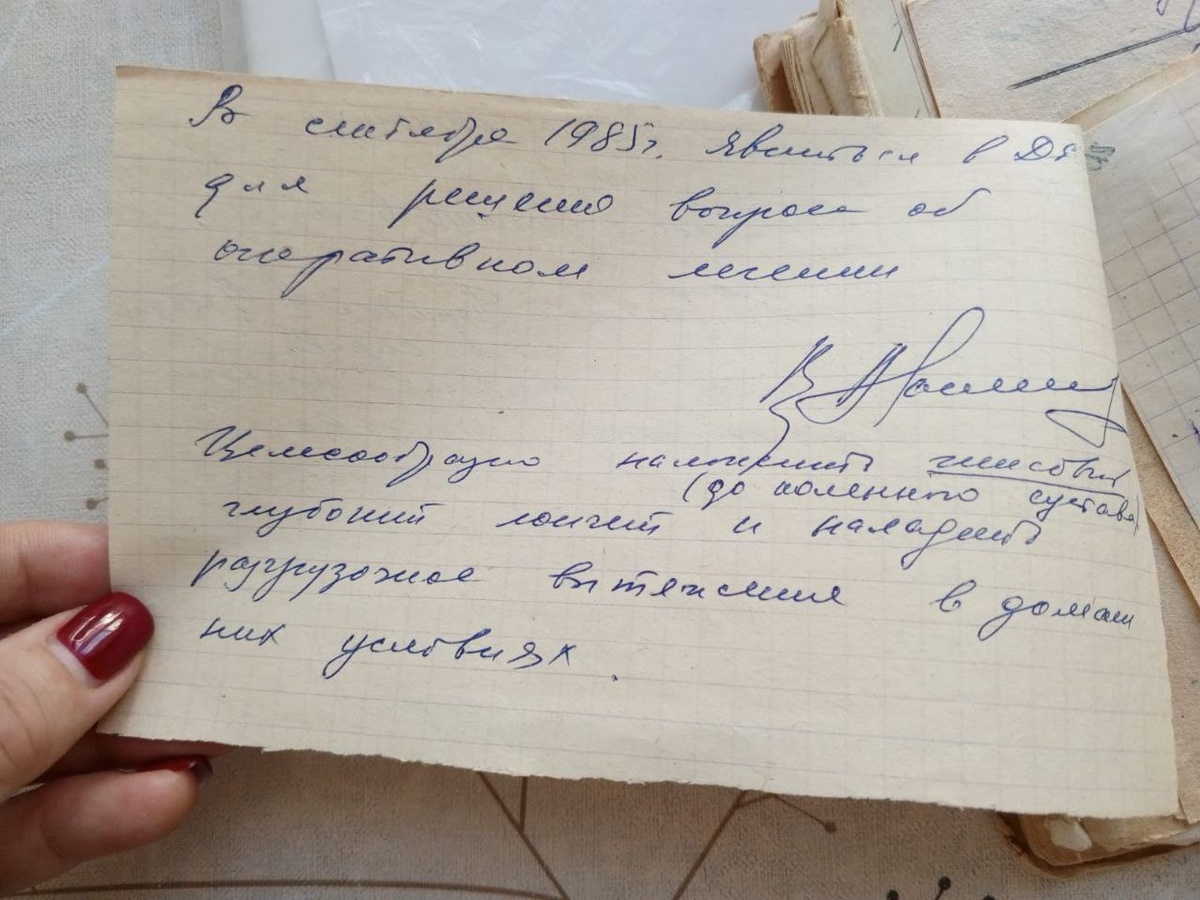 В сентябре 1985г. явиться в
для решения вопроса об
оперативном лечении
Целесообразно наложить гипсовый
(до коленного сустава)
глубокий лонгет и наладить
разгрузочное вытяжение в домаш
них условиях.